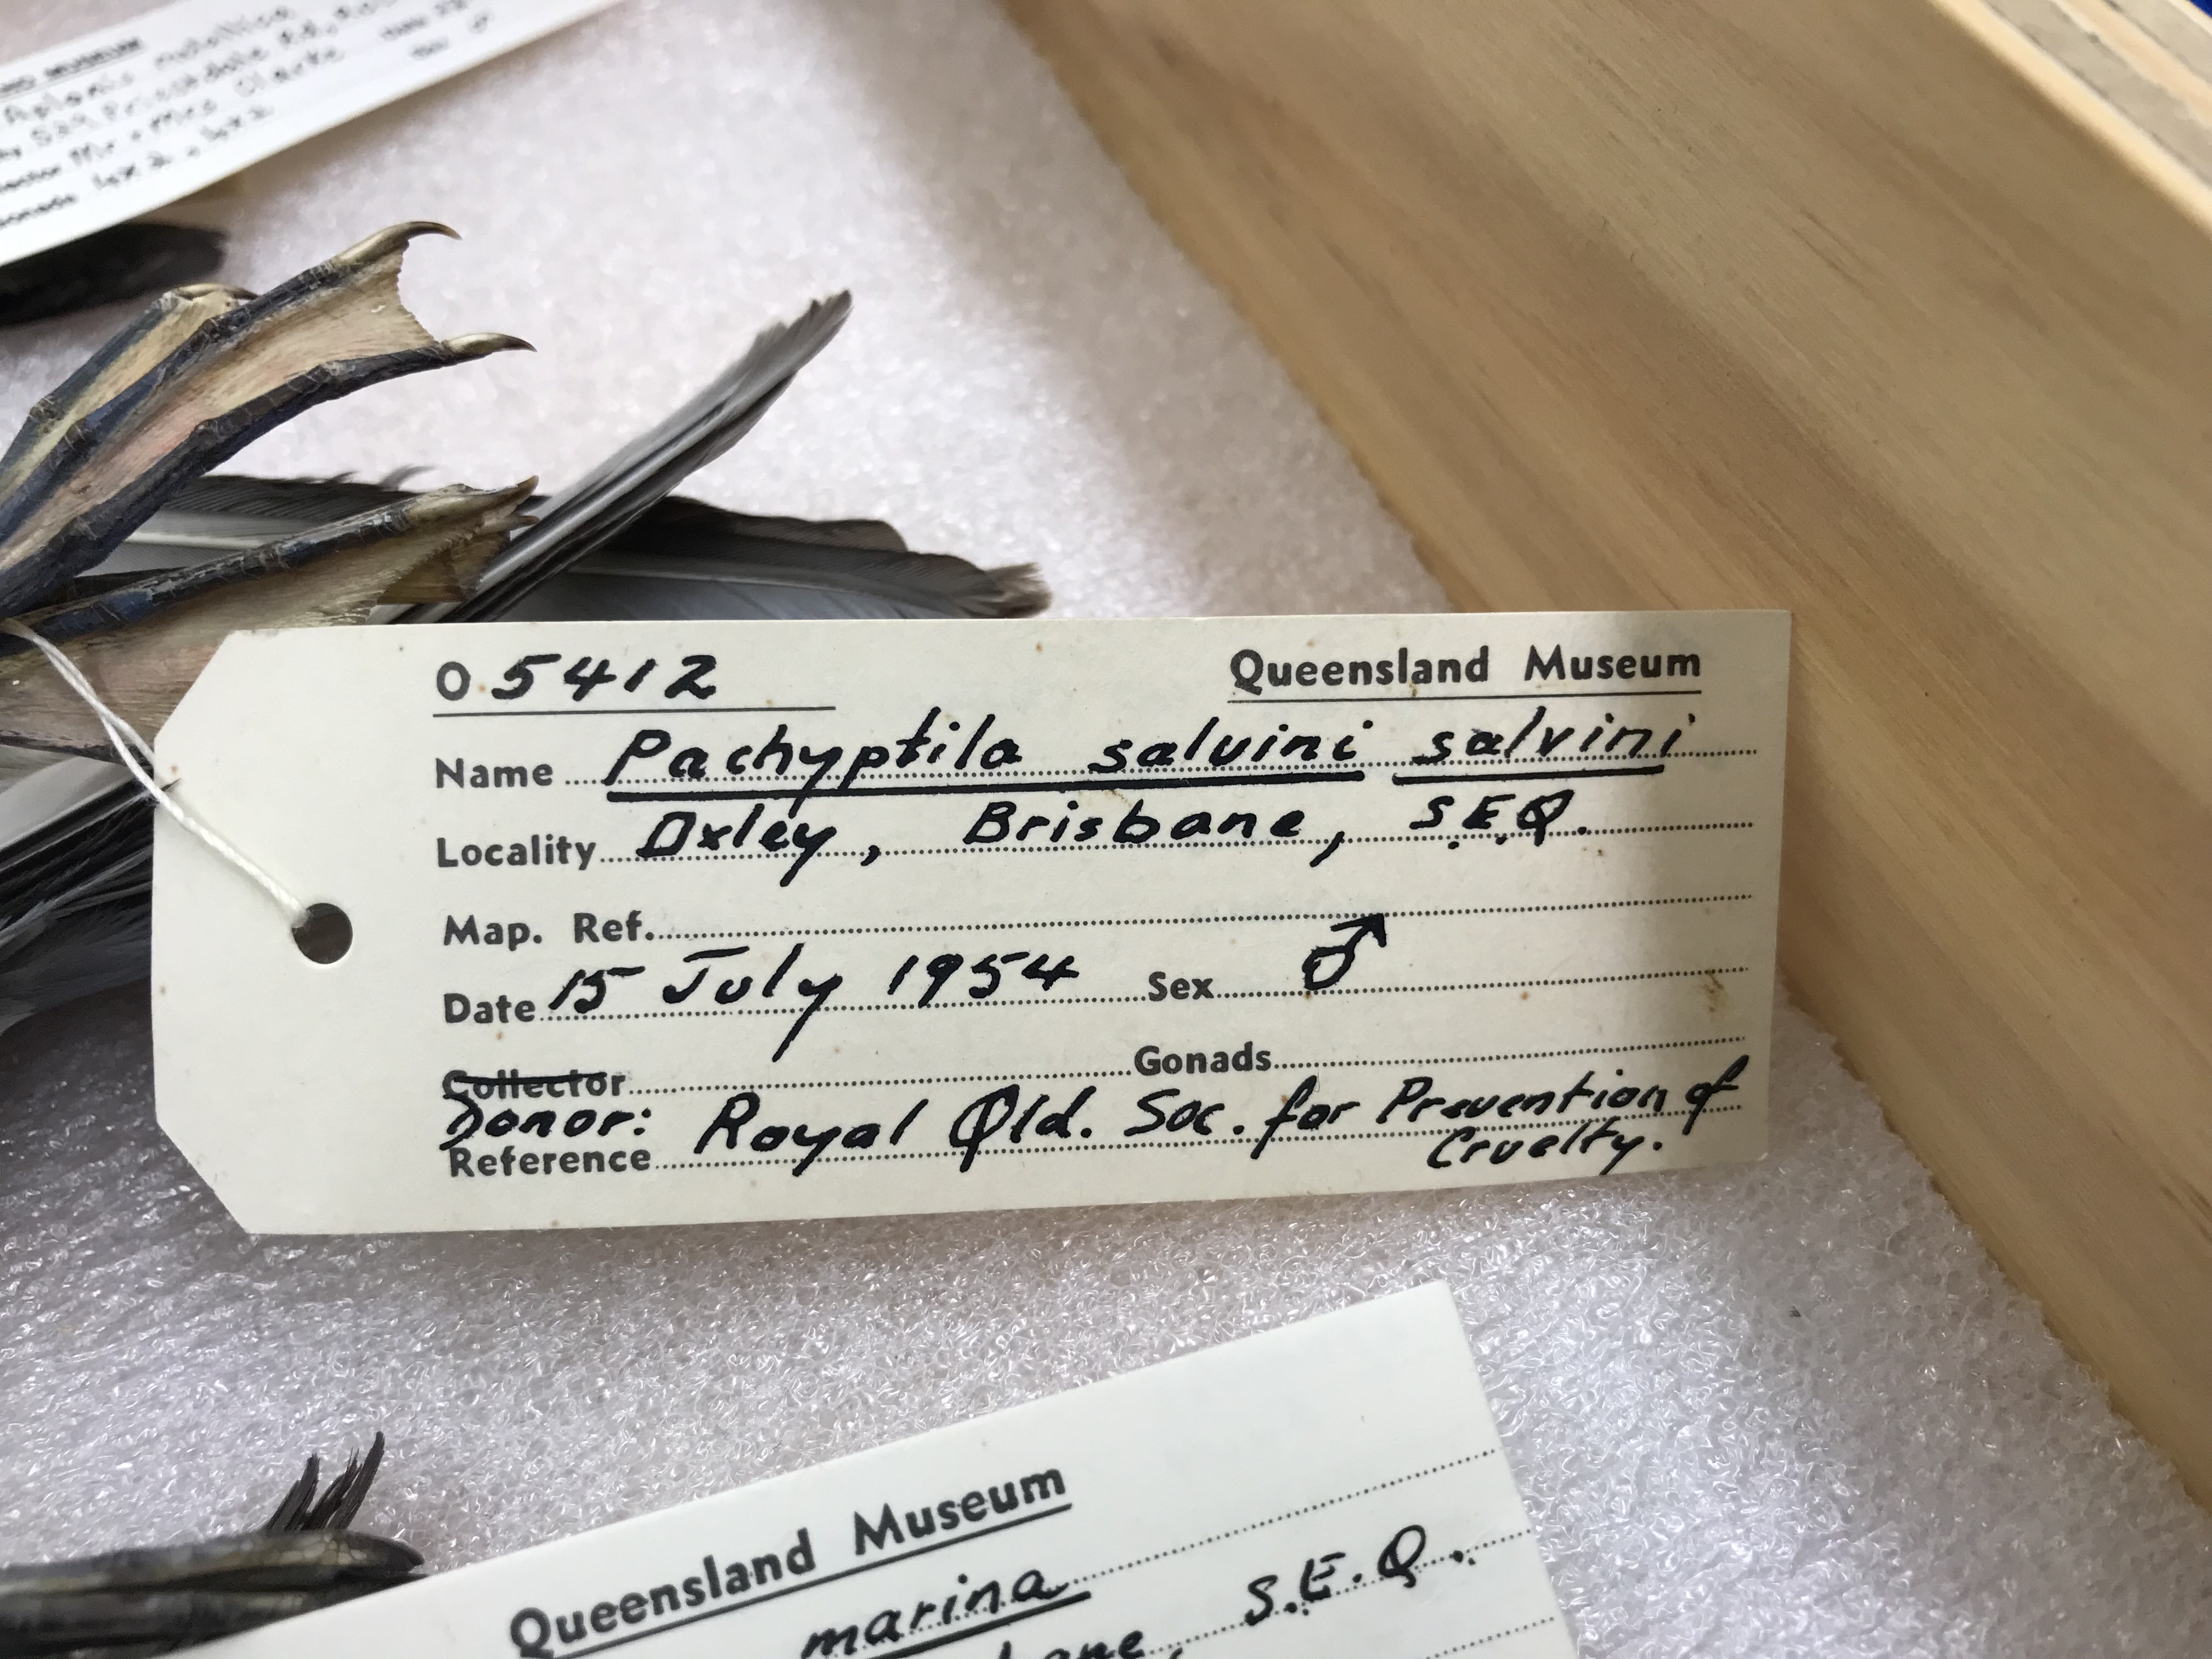 O.5412 Queensland Museum
Name Pachyptila salvini salvini
Locality Oxley, Brisbane, S.E.Q.
Map. Ref.
Date 15 July 1954 Sex ♂
Gonads
Collector
Donor: Royal Qld. Soc. for Prevention of
Reference Cruelty.
Queensland Museum
marina
S.E.Q.